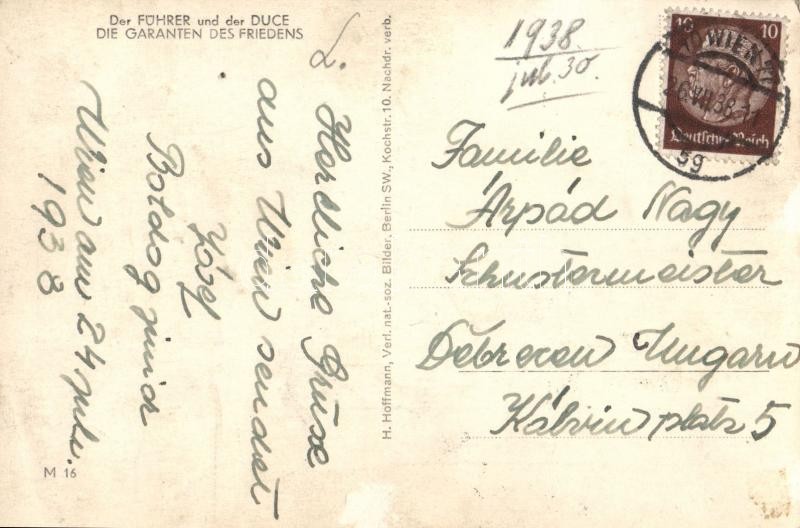 Der FÜHRER und der DUCE
DIE GARANTEN DES FRIEDENS
1938
jul. 30.
10 10
WIEN
VII.38
59
Deutsches Reich
Herzliche Grüsse
aus Wien sendet
Wien am 24 juli.
1938
M 16
H. Hoffmann, Verl. nat.-soz. Bilder, Berlin SW., Kochstr. 10. Nachdr. verb.
Familie
Árpád Nagy
Schustermeister
Debrecen Ungarn
Kálvin platz 5